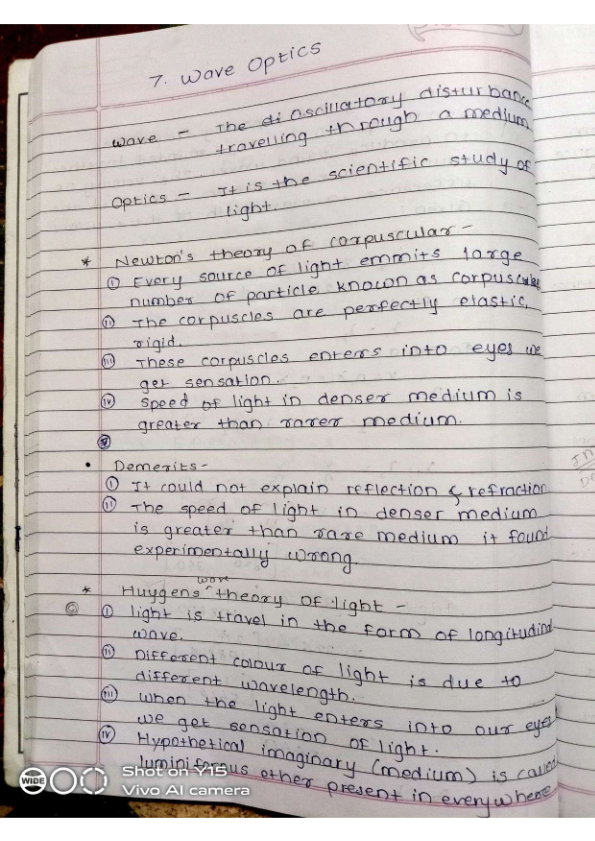 7. Wave Optics
Wave - The di Oscillatory disturbance
travelling through a medium
Optics - It is the scientific study of
light.
* Newton's theory of corpuscular -
(i) Every source of light emmits large
number of particle known as corpuscular
(ii) The corpuscles are perfectly elastic,
rigid.
(iii) These corpuscles enters into eyes we
get sensation.
(iv) Speed of light in denser medium is
greater than rarer medium.
(v)
• Demerits -
(i) It could not explain reflection & refraction
(ii) The speed of light in denser medium
is greater than rare medium it found
experimentally wrong.
wave
* Huygens ^ theory of light -
(i) light is travel in the form of longitudinal
wave.
(ii) Different colour of light is due to
different wavelength.
(iii) When the light enters into our eyes
we get sensation of light.
(iv) Hypothetical imaginary (medium) is called
luminiferous ether present in everywhere
WIDE Shot on Y15
Vivo AI camera